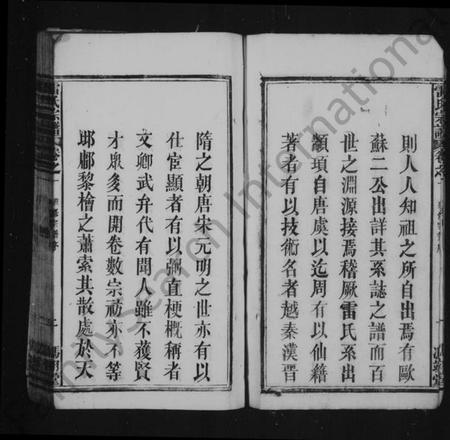 則人人知祖之所自出焉有歐
蘇二公出詳其系誌之譜而百
世之淵源接焉稽厥雷氏系出
顓頊自唐虞以迄周有以仙籍
著者有以技術名者越秦漢晋
隋之朝唐宋元明之世亦有以
仕宦顯者有以弼直梗概稱者
文卿武弁代有聞人雖不獲賢
才衆多而開卷數宗祊亦不等
郡鄘黎檜之蕭索其散處於天
mysearch International